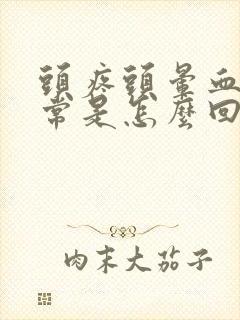 頭疼頭暈血
常是怎麼回
肉末大茄子